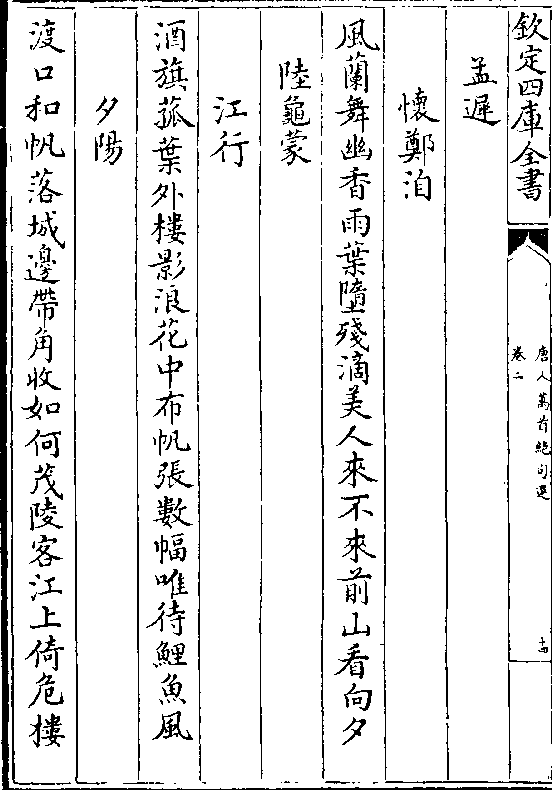 欽定四庫全書
唐人萬首絶句選
卷二
十四
孟遲
懷鄭洎
風蘭舞幽香雨葉墮殘滴美人來不來前山看向夕
陸龜蒙
江行
酒旗菰葉外樓影浪花中布帆張數幅唯待鯉魚風
夕陽
渡口和帆落城邊帶角收如何茂陵客江上倚危樓